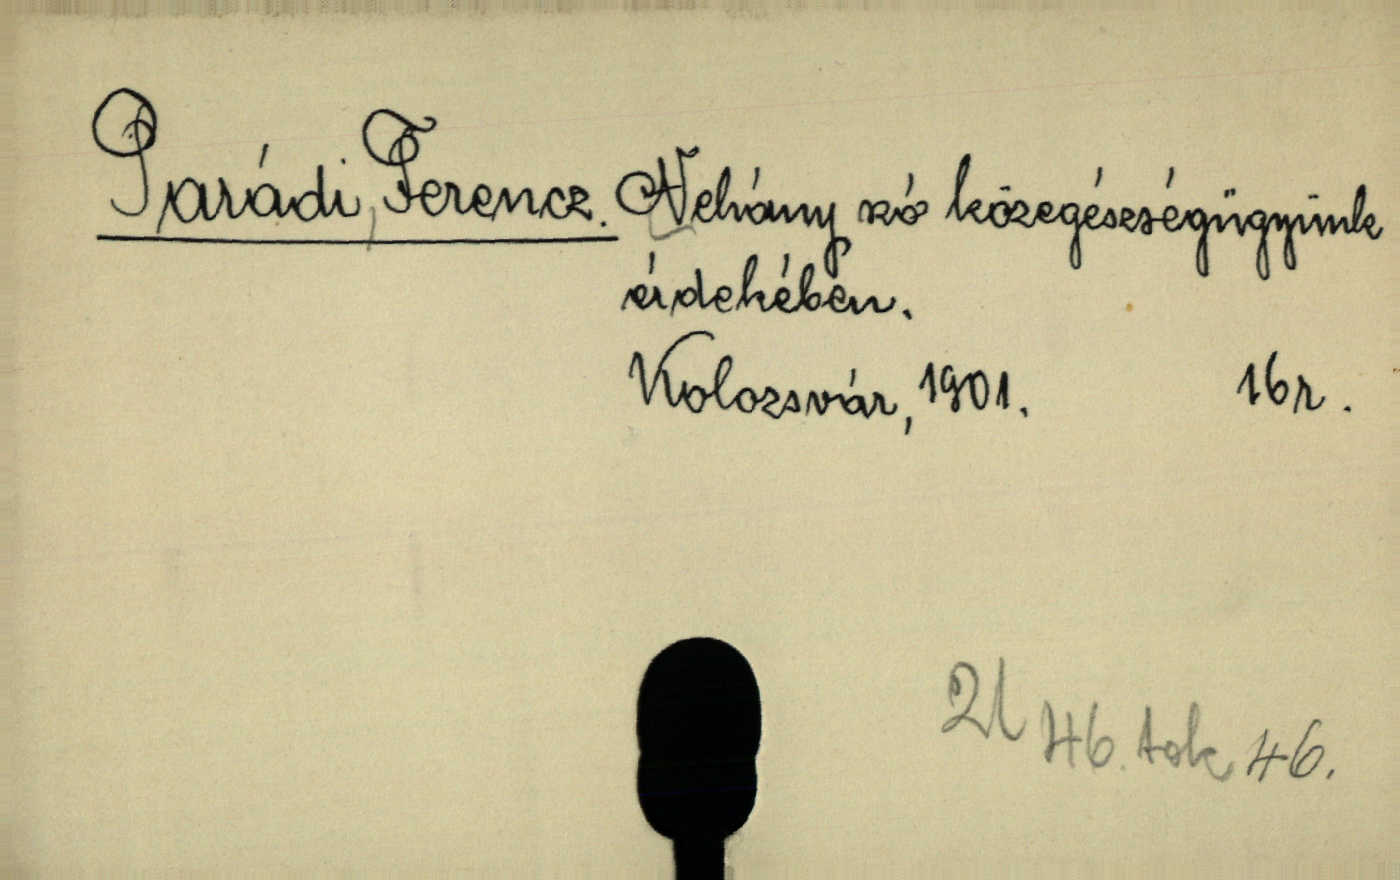 Parádi, Ferencz. Nehány szó közegészségügyünk
érdekében.
Kolozsvár, 1901. 16r.
46. tok 46.